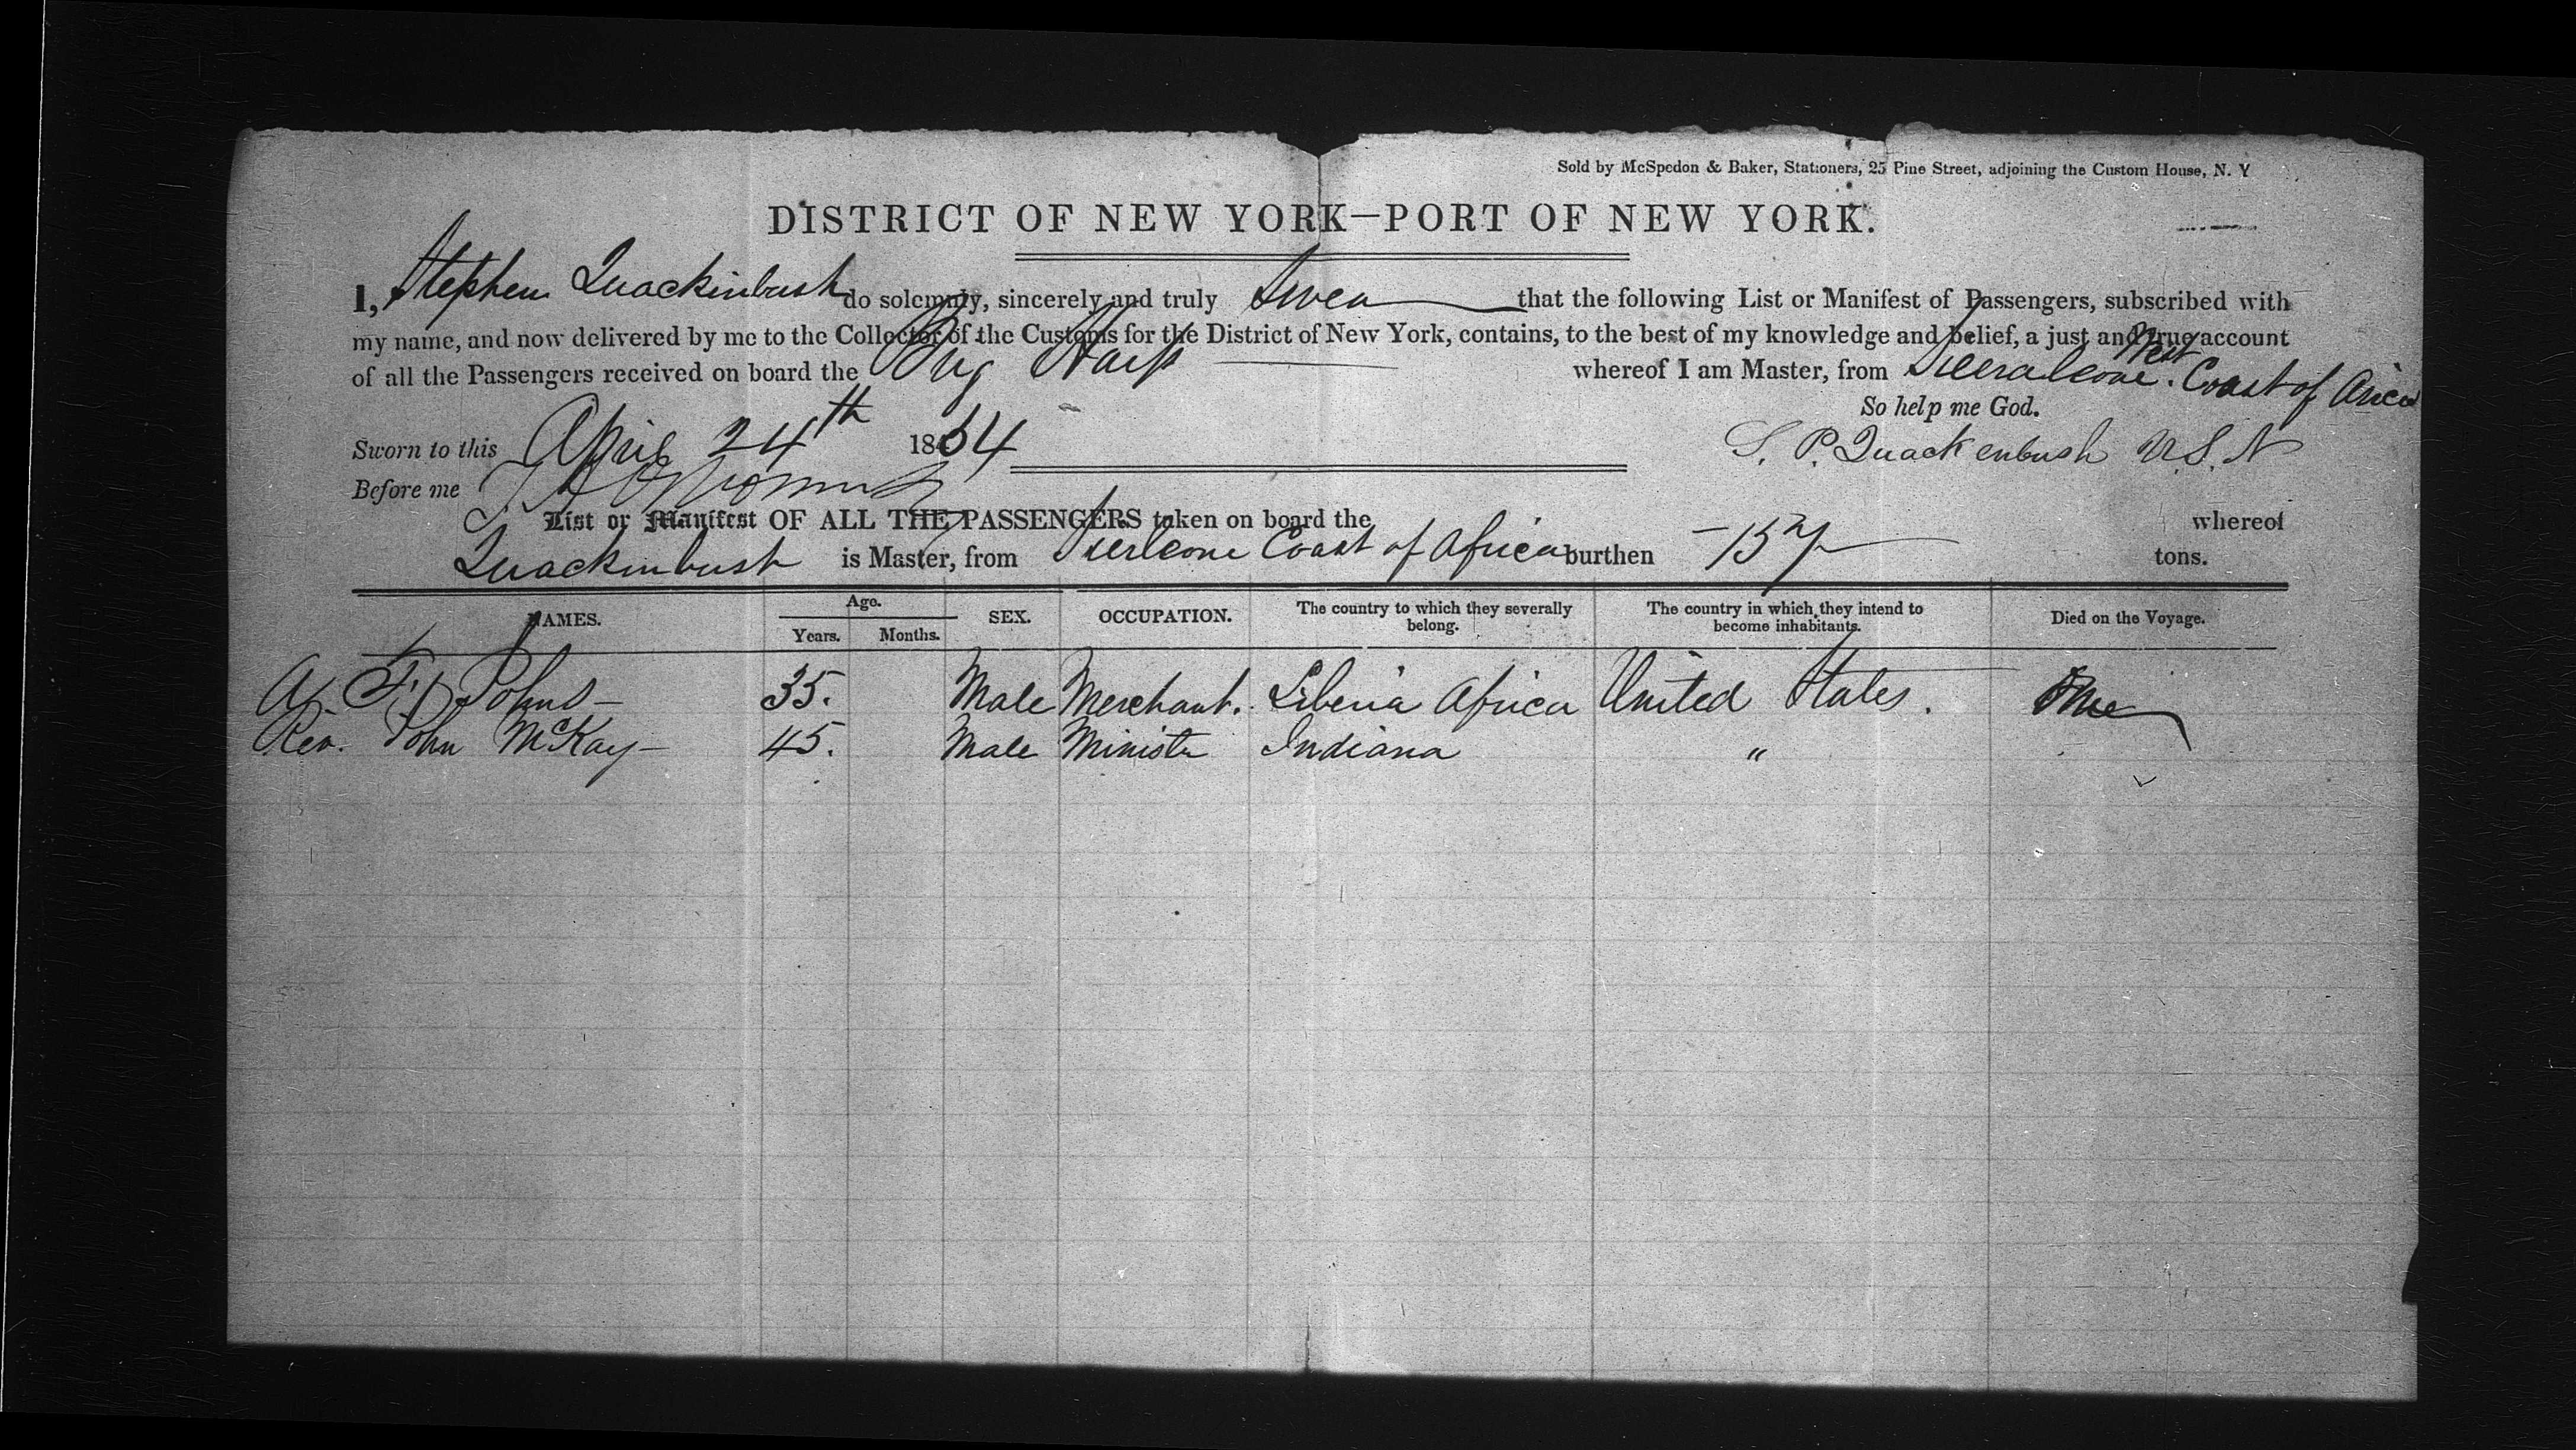 Sold by McSpedon & Baker, Stationers, 25 Pine Street, adjoining the Custom House, N. Y
DISTRICT OF NEW YORK—PORT OF NEW YORK.
I, Stephen Quackinbush do solemnly, sincerely and truly Swea that the following List or Manifest of Passengers, subscribed with
my name, and now delivered by me to the Collector of the Customs for the District of New York, contains, to the best of my knowledge and belief, a just and true account
of all the Passengers received on board the Brig whereof I am Master, from West Coast of
So help me God.
Sworn to this April 24th 1854 S. P. Quackenbush U.S.N
Before me
List or Manifest OF ALL THE PASSENGERS taken on board the whereof
Quackinbush is Master, from Coast of Africa burthen tons.
NAMES. Age. Years. Months. SEX. OCCUPATION. The country to which they severally belong. The country in which they intend to become inhabitants. Died on the Voyage.
A. F. Johns — 35. Male Merchant. Liberia Africa United States.
Rev. John McKay — 45. Male Ministr Indiana "